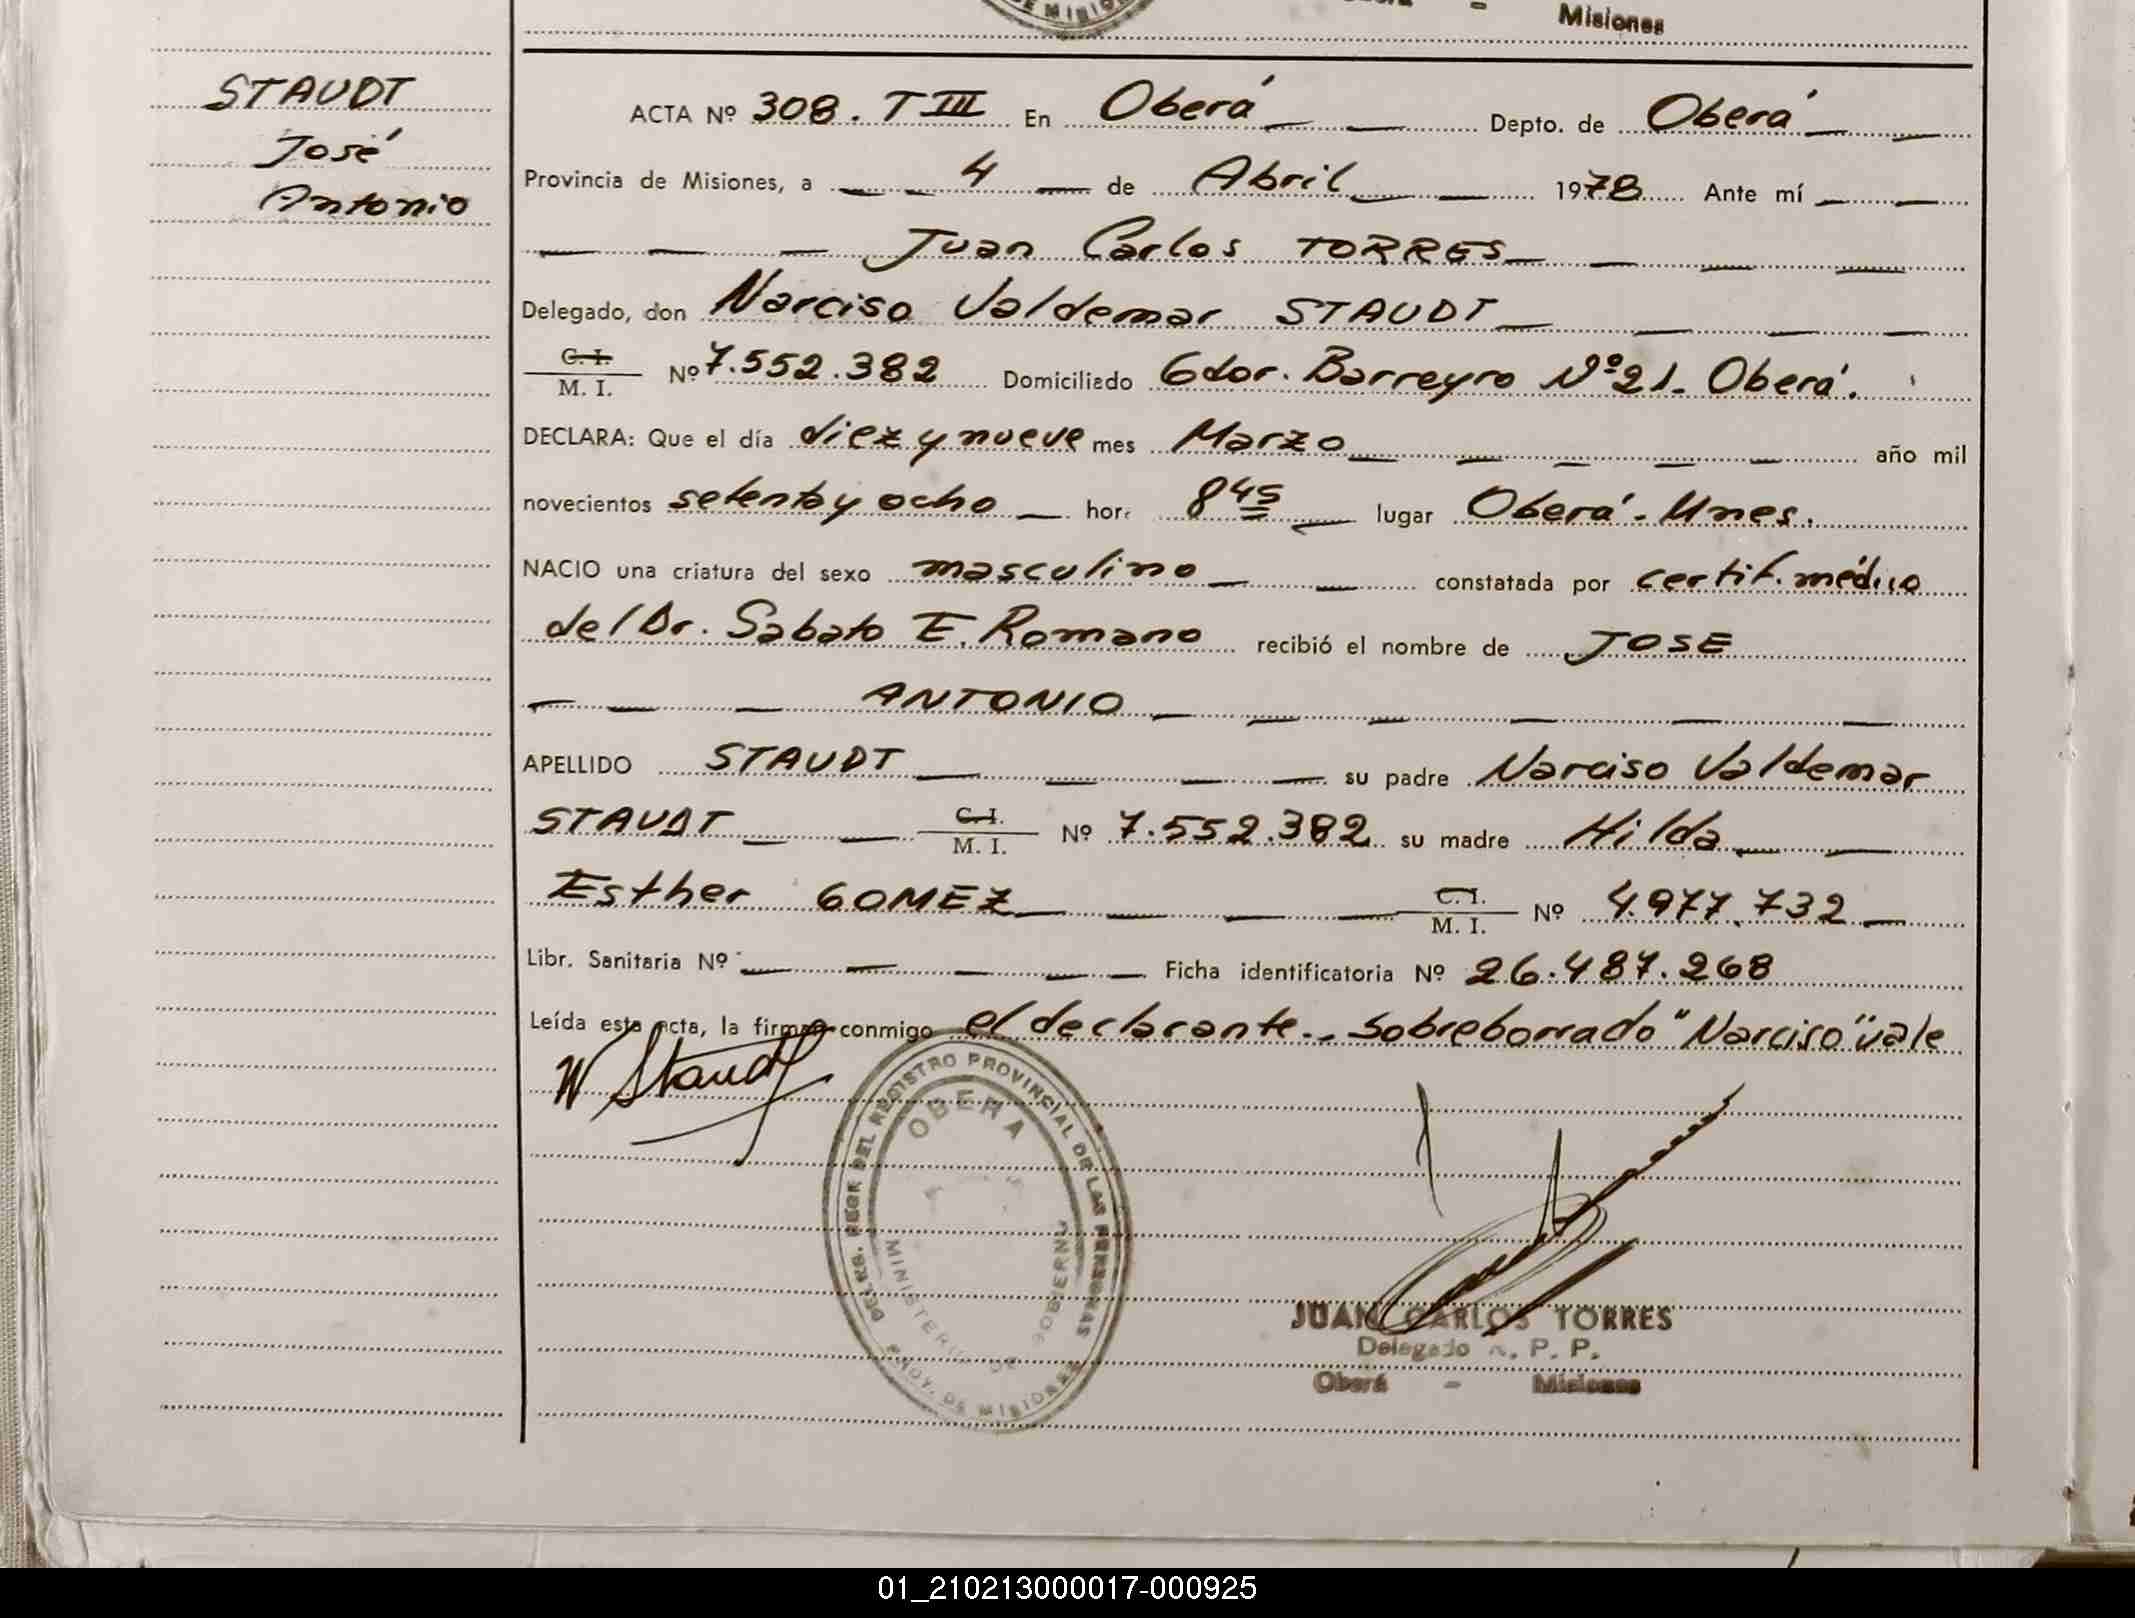 Misiones
STAUDT
José
Antonio
ACTA Nº 308. T III En Oberá Depto. de Oberá
Provincia de Misiones, a 4 de Abril 1978 Ante mí
Juan Carlos TORRES
Delegado, don Narciso Valdemar STAUDT
C. I.
M. I. Nº 7.552.382 Domiciliado Gdor. Barreyro Nº 21. Oberá.
DECLARA: Que el día diez y nueve mes Marzo año mil
novecientos setenta y ocho hor 8 45 lugar Oberá - Mnes.
NACIO una criatura del sexo masculino constatada por certif. médico
del Dr. Sabato E. Romano recibió el nombre de JOSE
ANTONIO
APELLIDO STAUDT su padre Narciso Valdemar
STAUDT C. I. M. I. Nº 7.552.382 su madre Hilda
Esther GOMEZ C. I. M. I. Nº 4.977.732
Libr. Sanitaria Nº Ficha identificatoria Nº 26.487.268
Leída esta acta, la firman conmigo el declarante.. Sobreborrado "Narciso" vale
W Staudt
REGISTRO PROVINCIAL DE LAS PERSONAS
OBERA
MINISTERIO DE GOBIERNO
PROV. DE MISIONES
JUAN CARLOS TORRES
Delegado R. P. P.
Oberá - Misiones
01_210213000017-000925